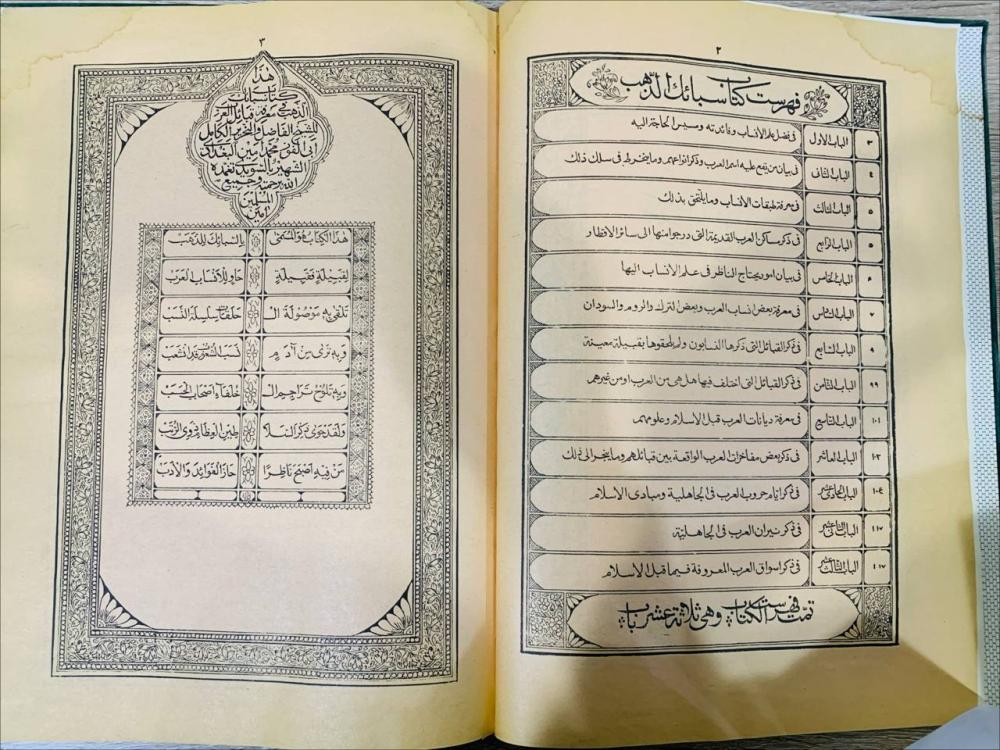 ٢
فهرست كتاب سبائك الذهب
٣ الباب الاول في فضل علم الانساب وفائدته ومسيس الحاجة اليه
٤ الباب الثاني في بيان من يقع عليه اسم العرب وذكر انواعهم وما ينخرط في سلك ذلك
٥ الباب الثالث في معرفة طبقات الانساب وما يلتحق بذلك
٥ الباب الرابع في ذكر مساكن العرب القديمة التي درجوا منها الى سائر الاقطار
٦ الباب الخامس في بيان امور يحتاج الناظر في علم الانساب اليها
٧ الباب السادس في معرفة بعض انساب العرب وبعض الترك والروم والسودان
٩ الباب السابع في ذكر القبائل التي ذكرها النسابون ولم يلحقوها بقبيلة معينة
٩٩ الباب الثامن في ذكر القبائل التي اختلف فيها هل هي من العرب او من غيرهم
١٠١ الباب التاسع في معرفة ديانات العرب قبل الاسلام وعلومهم
١٠٢ الباب العاشر في ذكر بعض مفاخرات العرب الواقعة بين قبائلهم وما ينجر الى ذلك
١٠٤ الباب الحادي عشر في ذكر ايام حروب العرب في الجاهلية ومبادي الاسلام
١١٧ الباب الثاني عشر في ذكر نيران العرب في الجاهلية
١١٧ الباب الثالث عشر في ذكر اسواق العرب المعروفة فيما قبل الاسلام
تمت فهرست الكتاب وهي ثلاثة عشر باب
٣
هذا
كتاب سبائك
الذهب في معرفة قبائل العرب
للشيخ الفاضل والنحرير الكامل
ابي الفوز محمد امين البغدادي
الشهير بالسويدي تغمده
الله برحمته وجميع
المسلمين
امين
هذا الكتاب هو المسمى بالسبائك للذهب
لقبيلة فقبيلة حاو للانساب العرب
تلقى به موصولة ال حلقات سلسلة النسب
وبه ترى من آدم نسب الشعوب قد انشعب
وبه تلوح تراجم ال خلفاء اصحاب الحسب
ولقد حوى ذكر السلا طين العظام ذوي الرتب
من فيه اصبح ناظرا حاز الفوائد والادب